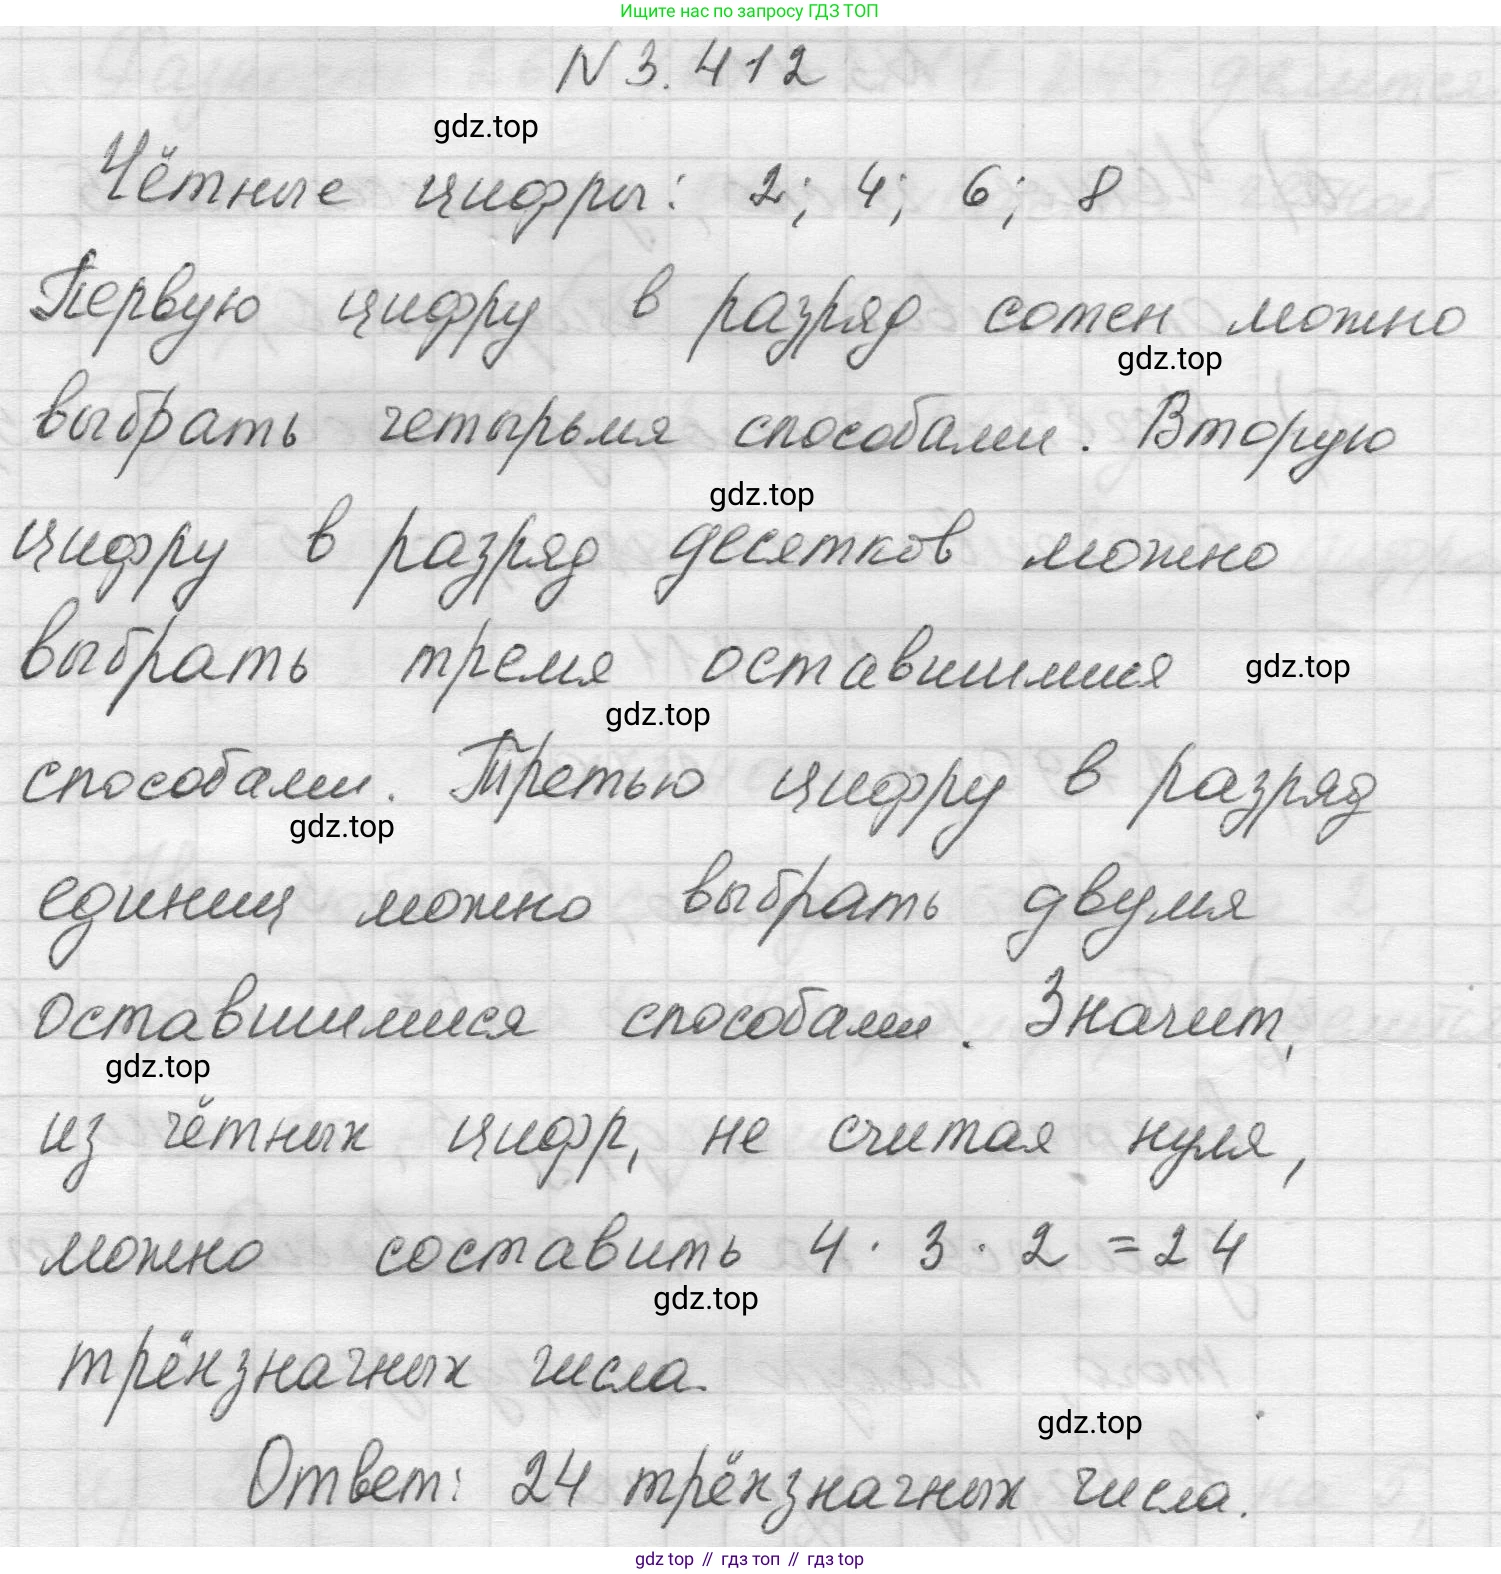 Ищите нас по запросу ГДЗ ТОП
N 3.412
gdz.top
Чётные цифры: 2; 4; 6; 8
Первую цифру в разряд сотен можно
gdz.top
выбрать четырьмя способами. Вторую
gdz.top
цифру в разряд десятков можно
выбрать тремя оставшимися
gdz.top
gdz.top
способами. Третью цифру в разряд
gdz.top
единиц можно выбрать двумя
оставшимися способами. Значит,
gdz.top
из чётных цифр, не считая нуля,
можно составить 4 · 3 · 2 = 24
gdz.top
трёхзначных числа.
gdz.top
Ответ: 24 трёхзначных числа.
gdz top // гдз топ // гдз top